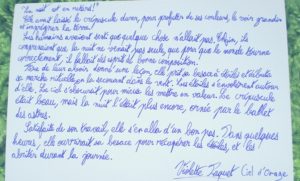 "La nuit est en retard!"
Elle avait laissé le crépuscule durer, pour profiter de ses couleurs, le voir grandir
et imprégner la terre!
Les humains savaient sentir que quelque chose n'allait pas. Chacun, ils
comprenaient que la nuit ne venait pas seule, que pour que le monde tourne
correctement, il fallait des esprits de bonne composition.
Fière de leur avoir donné une leçon, elle prit sa besace à étoiles et débuta
sa marche rituelle, en les semant dans le ciel. Les étoiles s'envolèrent autour
d'elle. Le ciel s'obscurcit pour mieux les mettre en valeur. Le crépuscule
était beau, mais la nuit l'était plus encore, ornée par le ballet
des astres.
Satisfaite de son travail, elle s'en alla d'un bon pas. Dans quelques
heures, elle ouvrirait sa besace pour récupérer les étoiles et les
abriter durant la journée.
Violette Paquet Ciel d'Orage